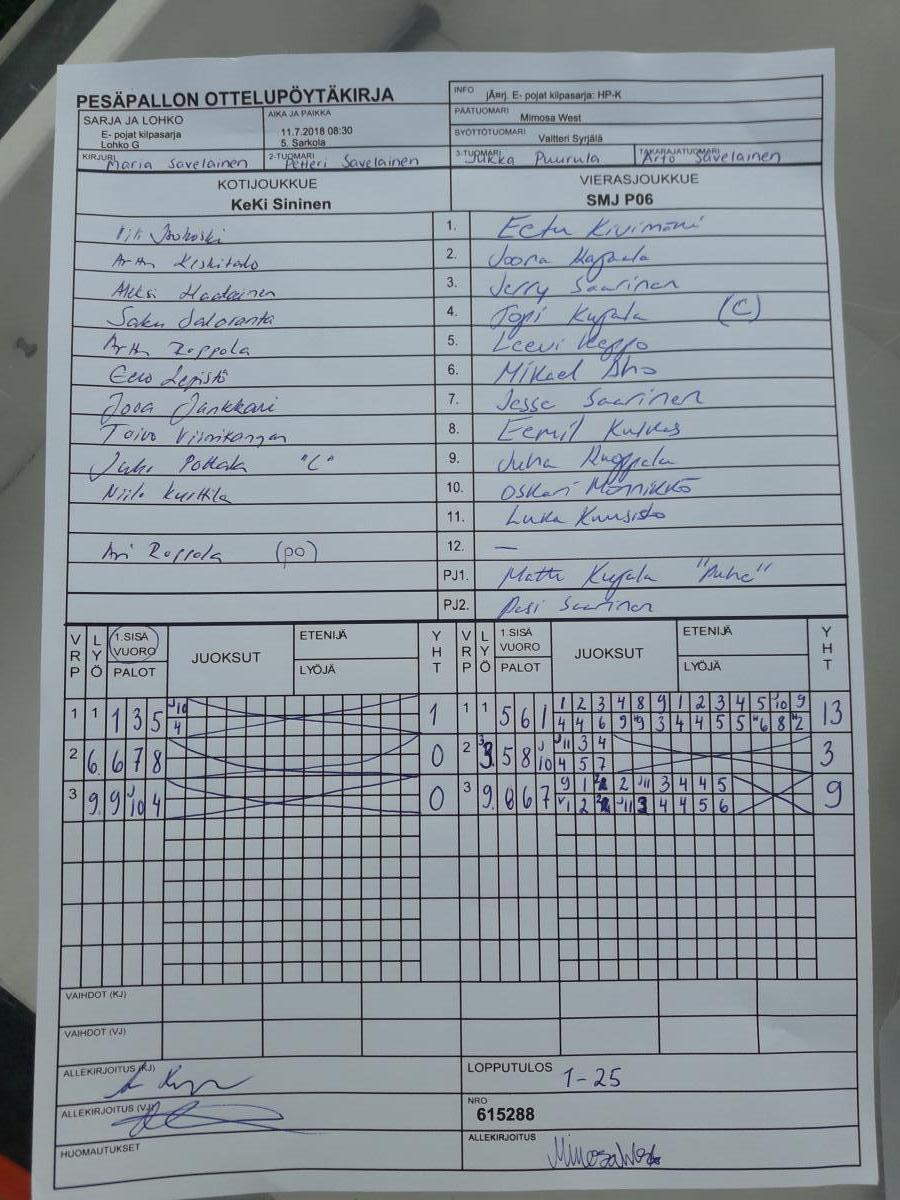 PESÄPALLON OTTELUPÖYTÄKIRJA
INFO jÄ¤rj. E- pojat kilpasarja: HP-K
SARJA JA LOHKO
E- pojat kilpasarja
Lohko G
AIKA JA PAIKKA
11.7.2018 08:30
5. Sarkola
PÄÄTUOMARI
Mimosa West
SYÖTTÖTUOMARI Valtteri Syrjälä
KIRJURI Maria Savelainen
2-TUOMARI Petteri Savelainen
3-TUOMARI Jukka Puurula
TAKARAJATUOMARI Arto Savelainen
KOTIJOUKKUE
KeKi Sininen
VIERASJOUKKUE
SMJ P06
1. Eetu Kivimäki
Keskitalo 2. Joona
3. Jerry Saarinen
Saku Saloranta 4. Topi Kujala (C)
Roppola 5. Leevi Keppo
Eero Lepistö 6. Mikael Aho
Joona Jankkari 7. Jesse Saarinen
Toivo 8. Eemil
"C" 9. Juha
Niilo Kurttila 10. Oskari Männikkö
11. Luka Kuusisto
Roppola (po) 12. —
PJ1. Kujala
PJ2. Pasi Saarinen
VRP LYÖ 1.SISÄ VUORO PALOT JUOKSUT ETENIJÄ LYÖJÄ YHT
VRP LYÖ 1.SISÄ VUORO PALOT JUOKSUT ETENIJÄ LYÖJÄ YHT
1 1 1 3 5 J10 1
4
1 1 5 6 1 1 2 3 4 8 9 1 2 3 4 5 J10 9 13
4 4 6 9 9 3 4 4 5 5 6 8 2
2 6. 6 7 8 0
2 3. 5 8 J10 J11 3 4 3
4 5 7
3 9. 9 J10 4 0
3 9. 6 7 9 1 2 2 J11 3 4 4 5 9
1 2 2 J11 3 4 4 5 6
VAIHDOT (KJ)
VAIHDOT (VJ)
ALLEKIRJOITUS (KJ)
LOPPUTULOS 1-25
ALLEKIRJOITUS (VJ)
NRO
615288
HUOMAUTUKSET
ALLEKIRJOITUS Mimosa West